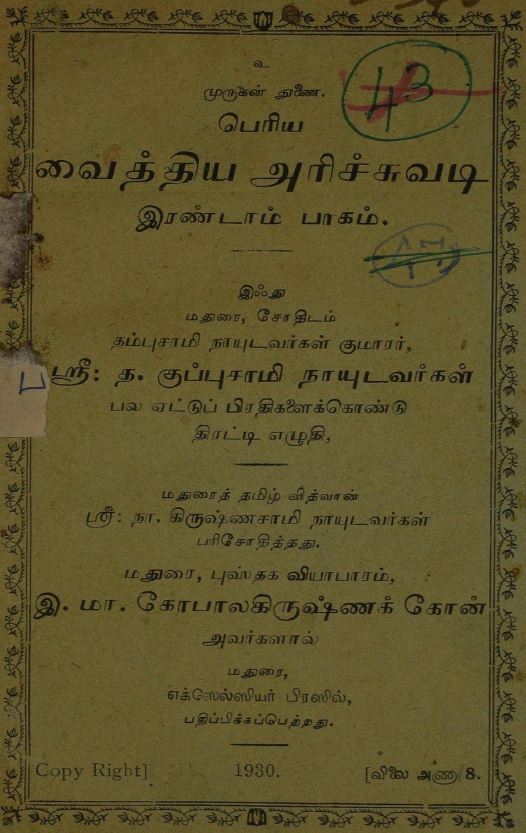 உ
முருகன் துணை.
43
பெரிய
வைத்திய அரிச்சுவடி
இரண்டாம் பாகம்.
47
இஃது
மதுரை, சோதிடம்
தம்புசாமி நாயுடவர்கள் குமாரர்,
ஸ்ரீ: த. குப்புசாமி நாயுடவர்கள்
பல ஏட்டுப் பிரதிகளைக்கொண்டு
திரட்டி எழுதி,
மதுரைத் தமிழ் வித்வான்
ஸ்ரீ: நா. கிருஷ்ணசாமி நாயுடவர்கள்
பரிசோதித்தது.
மதுரை, புஸ்தக வியாபாரம்,
இ. மா. கோபாலகிருஷ்ணக் கோன்
அவர்களால்
மதுரை,
எக்ஸெல்ஸியர் பிரஸில்,
பதிப்பிக்கப்பெற்றது.
Copy Right] 1930. [விலை அணா 8.